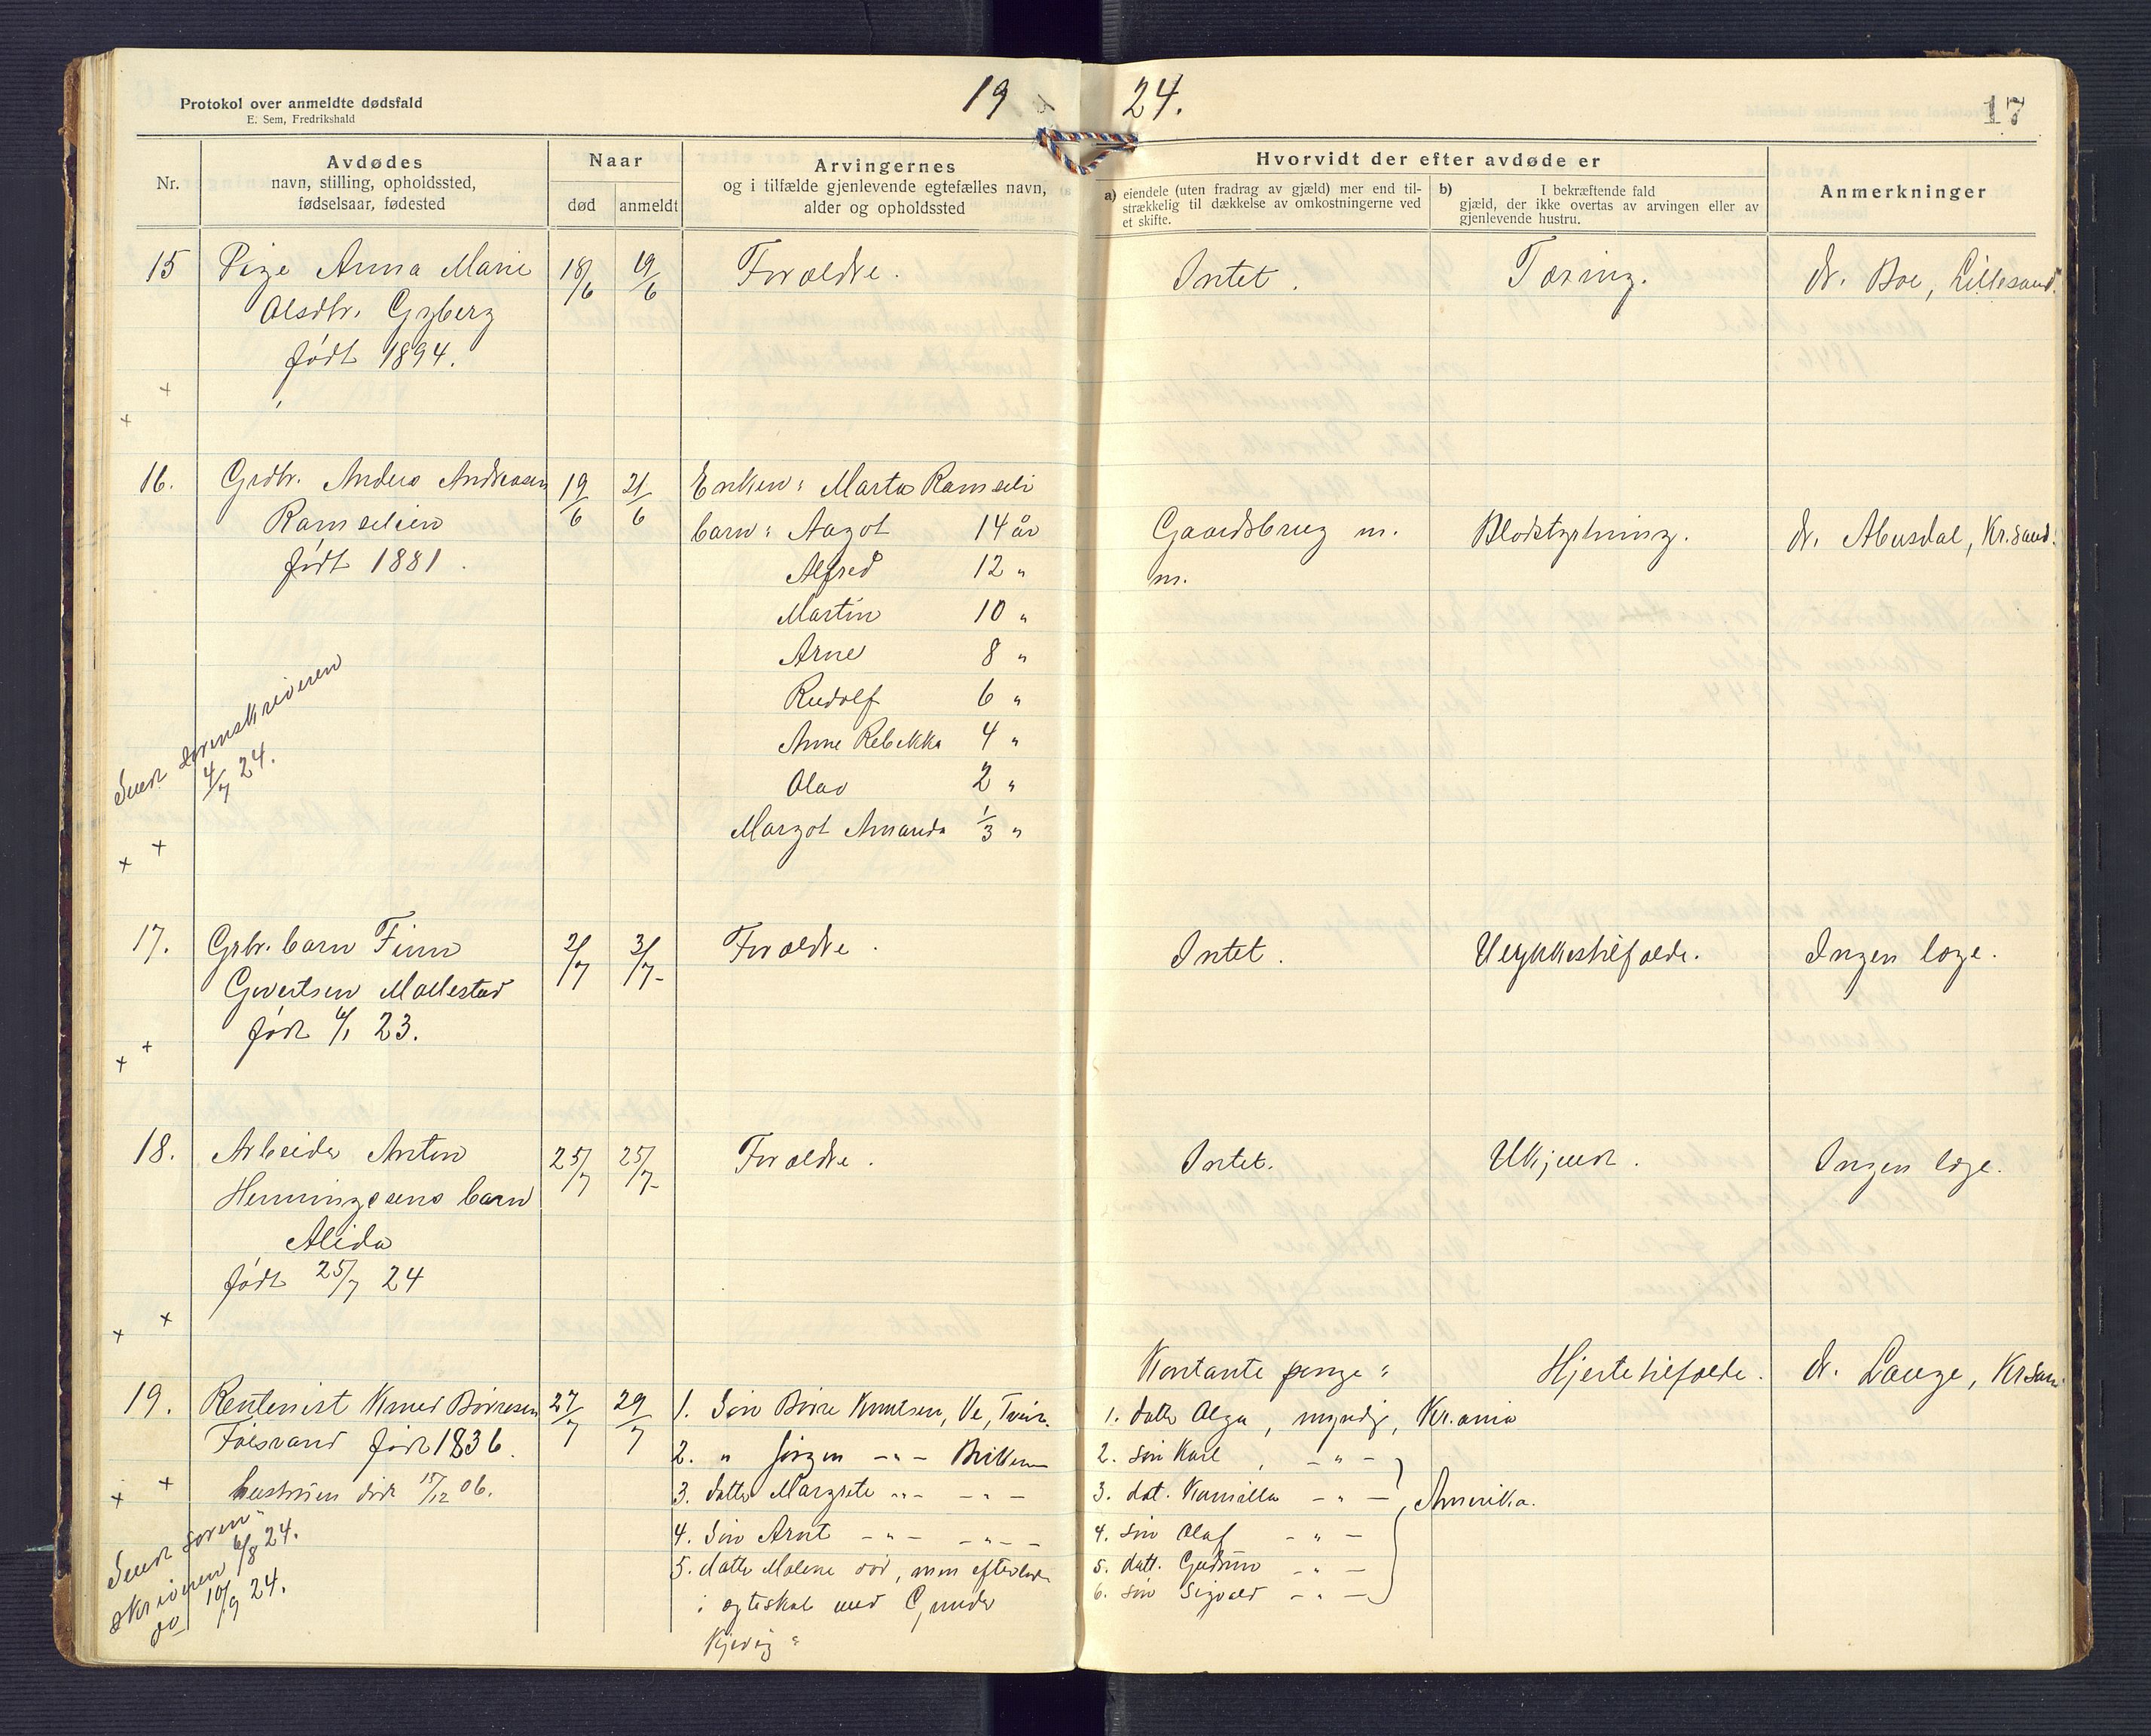 19 24.
17
Protokol over anmeldte dødsfald
E. Sem, Fredrikshald
Nr.
Avdødes
navn, stilling, opholdssted,
fødselsaar, fødested
Naar
død
anmeldt
Arvingernes
og i tilfælde gjenlevende egtefælles navn,
alder og opholdssted
Hvorvidt der efter avdøde er
a) eiendele (uten fradrag av gjæld) mer end til-
strækkelig til dækkelse av omkostningerne ved
et skifte.
b) I bekræftende fald
gjæld, der ikke overtas av arvingen eller av
gjenlevende hustru.
Anmerkninger
15 Pige Anna Marie 18/6 19/6 Forældre. Intet. Tæring. dr. Boe, Lillesand.
Olsdtr. Gyberg
født 1894.
16. Grdbr. Anders Andreasen 19/6 21/6 Enken: Marta Ramselie
Ramselien barn: Aagot 14 år Gaardsbrug m. Blodstyrtning. dr. Abusdal, Kr.sand.
født 1881. Alfred 12 " m.
Martin 10 "
Arne 8 "
Rudolf 6 "
Anne Rebekka 4 "
Olav 2 "
Margot Amanda 1/3 "
Sendt sorenskriveren
4/7 24.
17. Grbr. barn Finn 2/7 3/7- Forældre. Intet. Ulykkestilfælde. Ingen læge.
Gevertsen Mollestad
født 4/1 23.
18. Arbeider Anton 25/7 25/7- Forældre. Intet. Ukjendt. Ingen læge.
Henningsens barn
Alida
født 25/7 24
Kontante penge: Hjertetilfælde. dr. Lauge, Krsand
19. Rentenist Knud Børresen 27/7 29/7 1. Søn Børre Knutsen, Ve, Tveit. 1. datter Olga, myndig, Kr.ania
Foesvand født 1836. 2. " Jørgen -"- Birkenes 2. søn Karl, -"-
hustruen død 15/12 06. 3. datter Margrete -"- -"- 3. dat. Kamilla -"- Amerika.
Sendt soren-
skriveren 6/8 24.
do 10/9 24.
4. Søn Arnt -"- -"- 4. søn Olaf -"-
5. datter Malene død, men efterlader 5. datt. Gudrun -"-
i ægteskab med Gunder 6. søn Sigvald -"-
Kjevig: